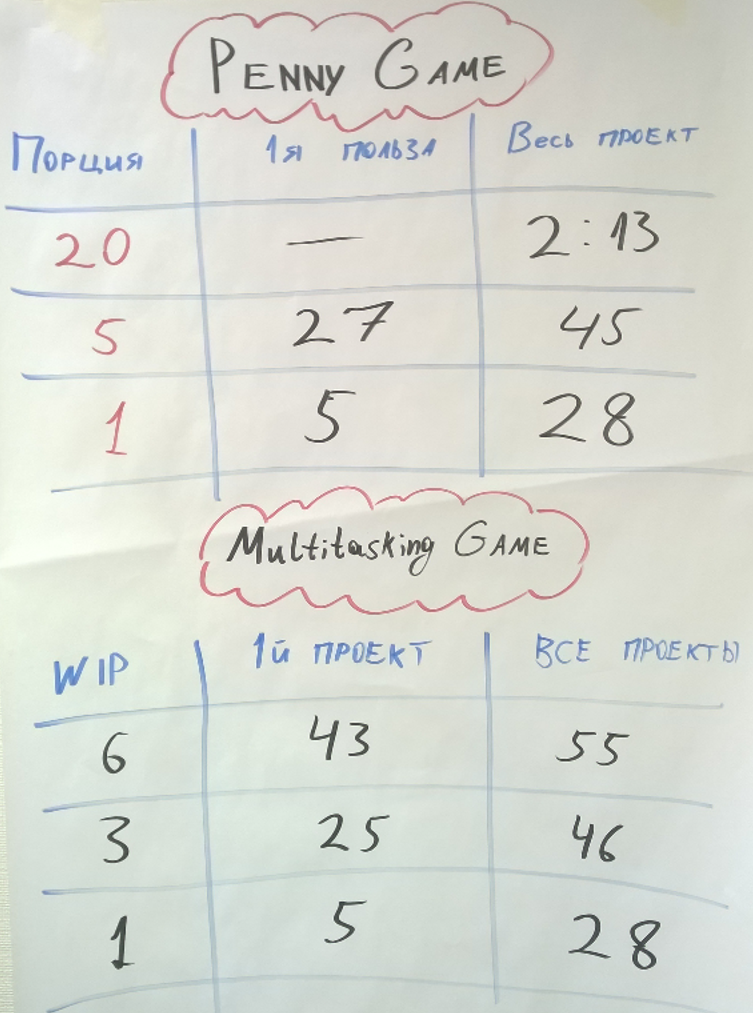 PENNY GAME
ПОРЦИЯ 1Я ПОЛЬЗА ВЕСЬ ПРОЕКТ
20 — 2:13
5 27 45
1 5 28
Multitasking GAME
WIP 1й ПРОЕКТ ВСЕ ПРОЕКТЫ
6 43 55
3 25 46
1 5 28